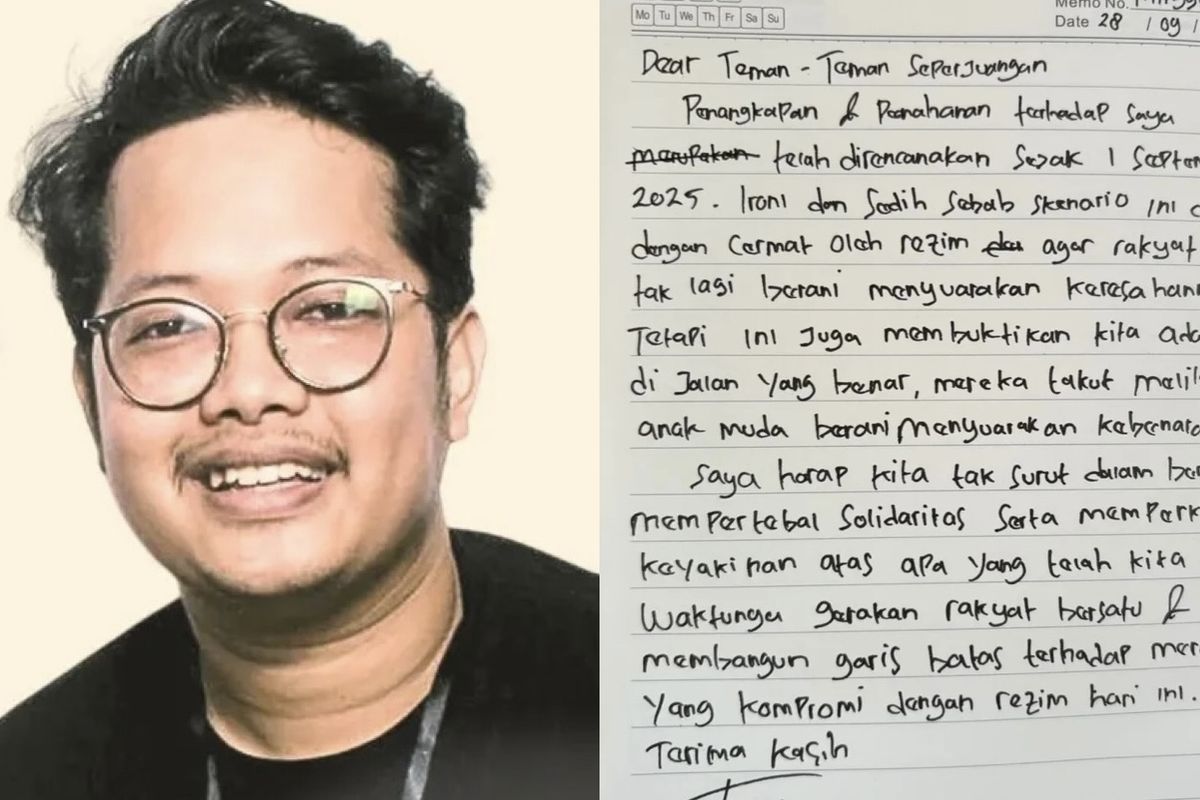 Mo Tu We Th Fr Sa Su
Memo No.
Date 28 / 09 /
Dear Teman - Teman Seperjuangan
Penangkapan & Penahanan terhadap saya
merupakan telah direncanakan Sejak 1 Septem
2025. Ironi dan Sedih Sebab skenario ini
dengan Cermat Oleh rezim agar rakyat
tak lagi berani menyuarakan keresahann
Tetapi ini Juga membuktikan kita ada
di Jalan yang benar, mereka takut melih
anak muda berani menyuarakan kebenara
Saya harap kita tak surut dalam
mempertebal Solidaritas Serta memperk
keyakinan atas apa yang telah kita
Waktunya gerakan rakyat bersatu &
membangun garis batas terhadap mer
yang kompromi dengan rezim hari ini.
Terima kasih